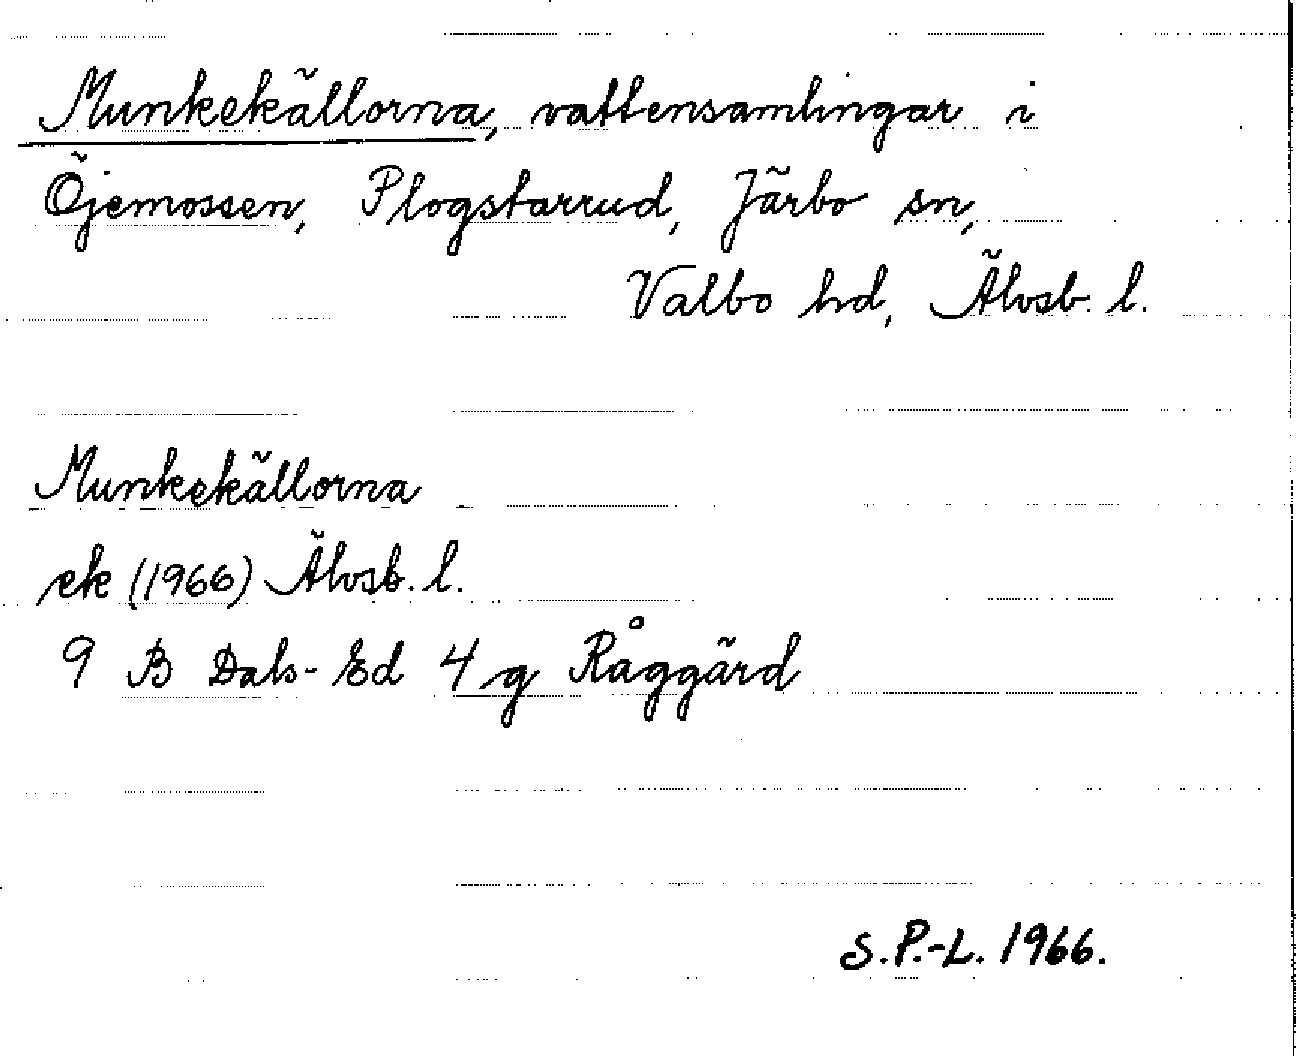 Munkekällorna, vattensamlingar i
Öjemossen, Plogstarrud, Järbo sn,
Valbo hd, Älvsb. l.
Munkekällorna
ek (1966) Älvsb. l.
9 B Dals-Ed 4 g Råggärd
S.P.-L. 1966.